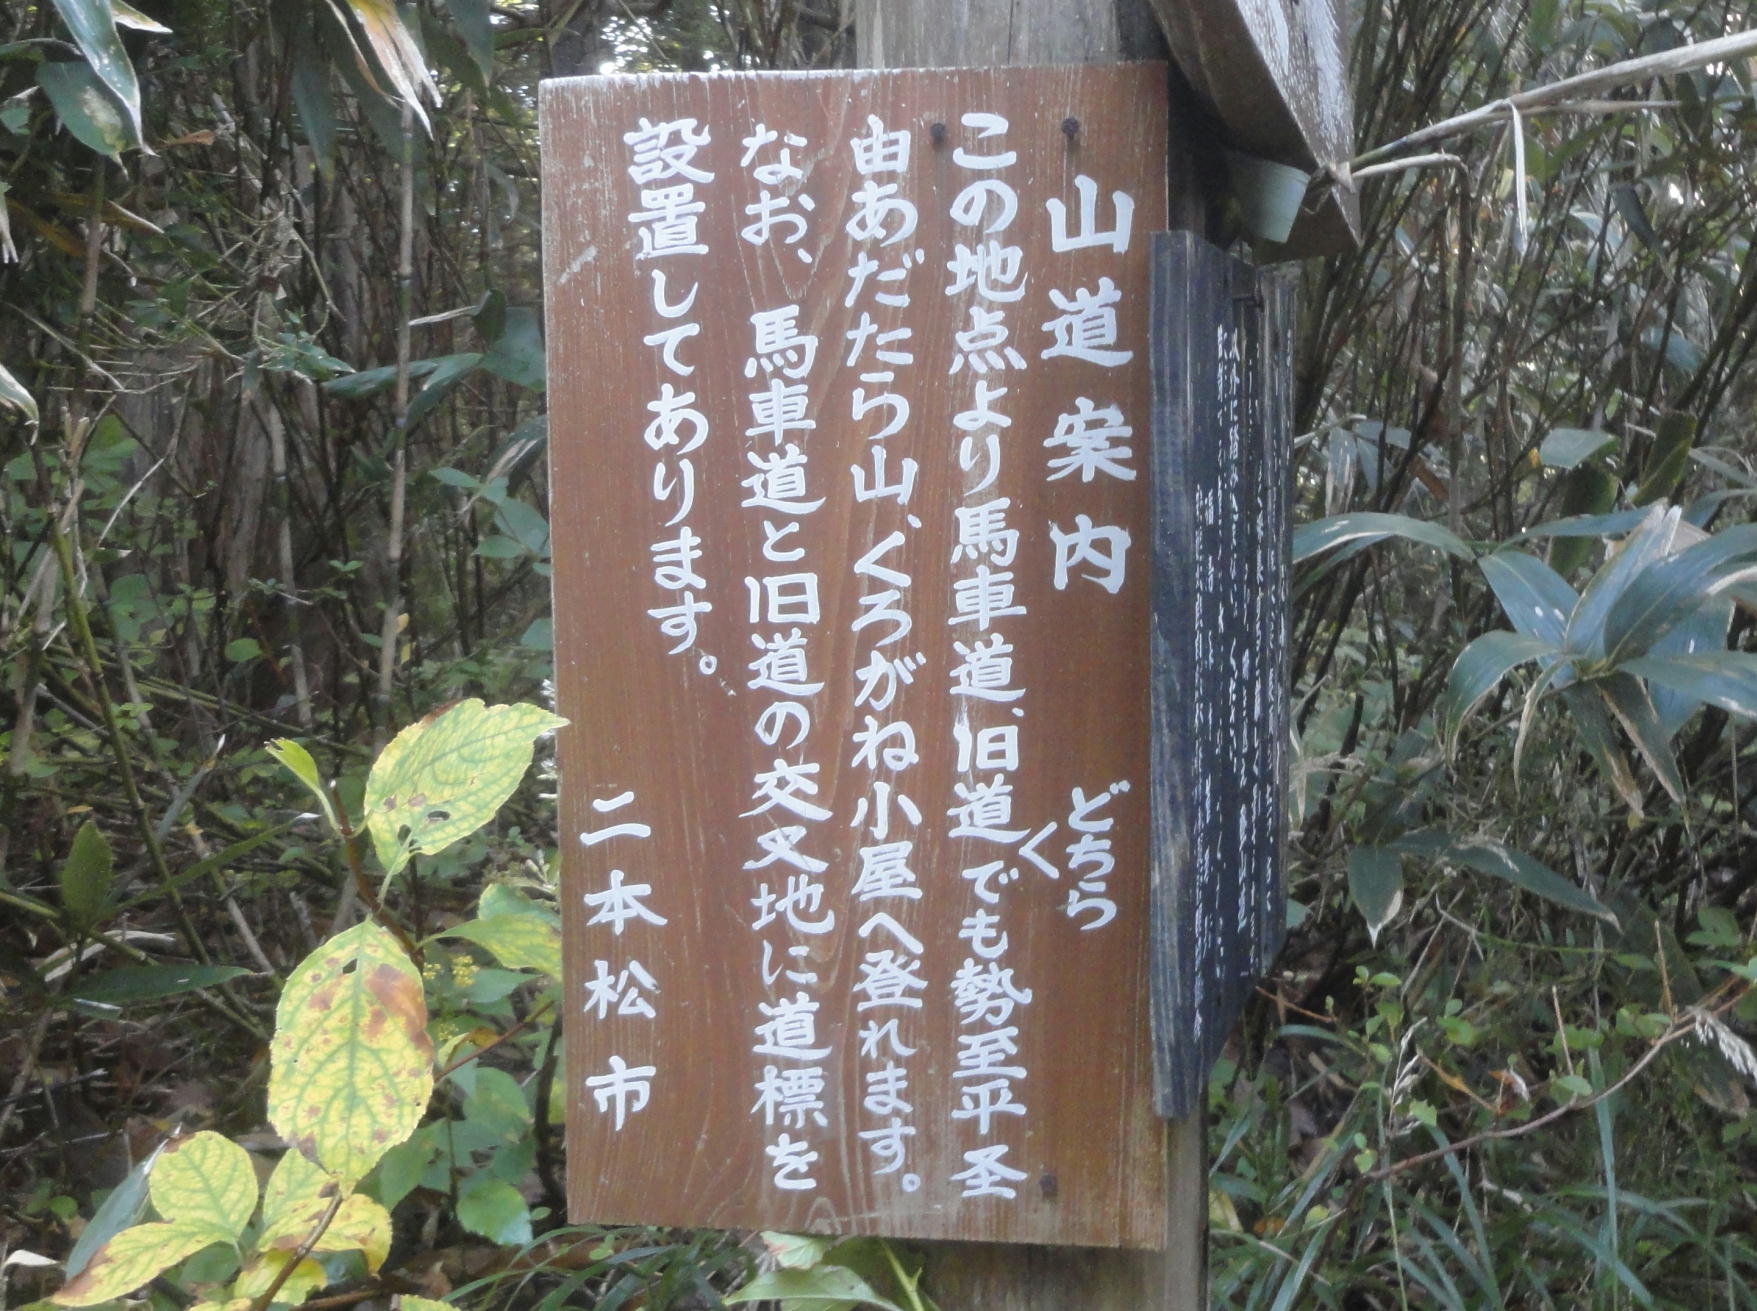 山道案内
この地点より馬車道、旧道どちらでも勢至平圣
由あだたら山、くろがね小屋へ登れます。
なお、馬車道と旧道の交叉地に道標を
設置してあります。
二本松市